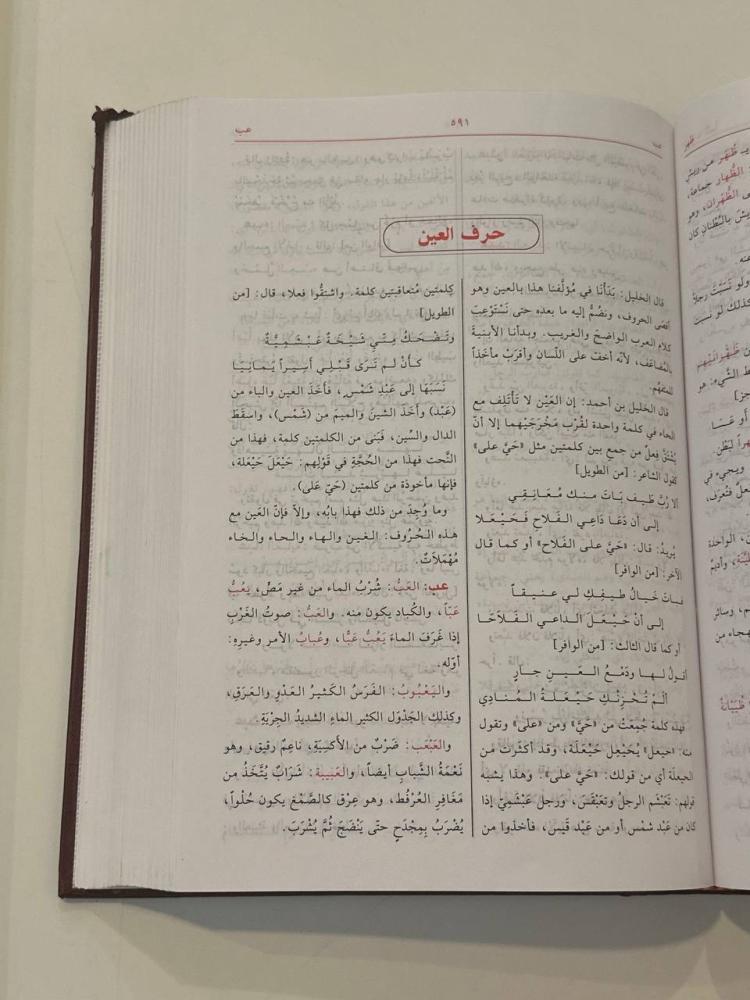 عب
٥٩١
عب
حرف العين
قال الخليل: بَدَأْنَا فِي مُؤَلَّفنا هذا بالعين وهو
أقصَى الحروف، ونضُم إليه ما بعده حتى نَسْتَوْعِبَ
كلام العرب الواضحَ والغريب. وبدأنا الأبنيةَ
بالمُضاعَف، لأنّه أخفّ على اللّسان وأقرَبُ مأخَذاً
للمتفهِّم.
قال الخليل بن أحمد: إن العَيْن لا تَأتَلِف مع
الحاء في كلمة واحدة لقُرْب مَخْرَجَيْهما إلا أنْ
يُشتَقَّ فِعلٌ من جمعٍ بين كلمتين مثل «حَيَّ على»
كقول الشاعر: [من الطويل]
ألا رُبَّ طَيفٍ بَاتَ منك مُعَانِقِي
إلى أن دَعَا دَاعِي الفَلَاحِ فَحَيْعَلا
يُرِيدُ: قال: «حَيَّ على الفَلَاحِ» أو كما قال
الآخر: [من الوافر]
فباتَ خَيالُ طَيفِكِ لي عنيقاً
إلى أنْ حَيْعَلَ الداعي الفَلَاحَا
أو كما قال الثالث: [من الوافر]
أقولُ لها ودَمْعُ العَينِ جارٍ
أَلَمْ تُحْزِنْكِ حَيْعَلةُ المُنادِي
فهذه كلمة جُمِعَتْ من «حَيَّ» ومن «على» وتقول
منه: «حيعل» يُحَيْعِل حَيْعَلَة، وقد أكثَرْتَ من
الحيعلَة أي من قولك: «حَيَّ على». وهذا يشبه
قولهم: تَعَبْشَم الرجلُ وتَعَبْقَسَ، ورجل عَبْشَمِيّ إذا
كان من عَبْد شمْس أو من عَبْد قَيس، فأخذوا من
كلمتين مُتعاقبتين كلمة. واشتقُوا فعلا، قال: [من
الطويل]
وتَضْحَكُ مِنّي شَيْخَةٌ عَبْشَمِيَّةٌ
كَأَنْ لم تَرَى قَبْلِي أَسِيراً يَمَانِيَا
نَسَبَهَا إلى عَبْدِ شَمْس، فأخَذَ العين والباء من
(عَبْد) وأخَذَ الشينَ والميمَ من (شَمْس)، واسقَطَ
الدال والسِّين، فَبَنى من الكلمتين كلمة، فهذا من
النَّحت فهذا من الحُجَّةِ في قَوْلهم: حَيْعَلَ حَيْعَلة،
فإنها مأخوذة من كلمتين (حَيّ عَلى).
وما وُجِدَ من ذلك فهذا بابُه، وإلاّ فإنّ العَين مع
هذه الحُرُوف: الغين والهاء والحاء والخاء
مُهْمَلَاتٌ.
عب: العَبُّ: شُرْبُ الماء من غير مَصٍّ، يَعُبُّ
عَبّاً، والكُباد يكون منه. والعَبُّ: صوتُ الغَرْبِ
إذا غَرَفَ الماءَ يَعُبُّ عَبًّا، وعُبابُ الأمر وغيره:
أوّله.
واليَعْبُوبُ: الفَرَسُ الكَثيرُ العَدْوِ والعَرَقِ،
وكذلك الجَدْوَل الكثير الماءِ الشديدُ الجِرْيَةِ.
والعَبْعَب: ضَرْبٌ من الأَكسِيَةِ، ناعِمٌ رقيق، وهو
نَعْمَةُ الشَّبابِ أيضاً، والعَبيبة: شَرَابٌ يُتَّخَذُ من
مَغَافِر العُرْفُط، وهو عِرْق كالصَّمْغ يكون حُلْواً،
يُضْرَبُ بِمِجْدَح حتّى يَنْضَجَ ثُمَّ يُشْرَبَ.